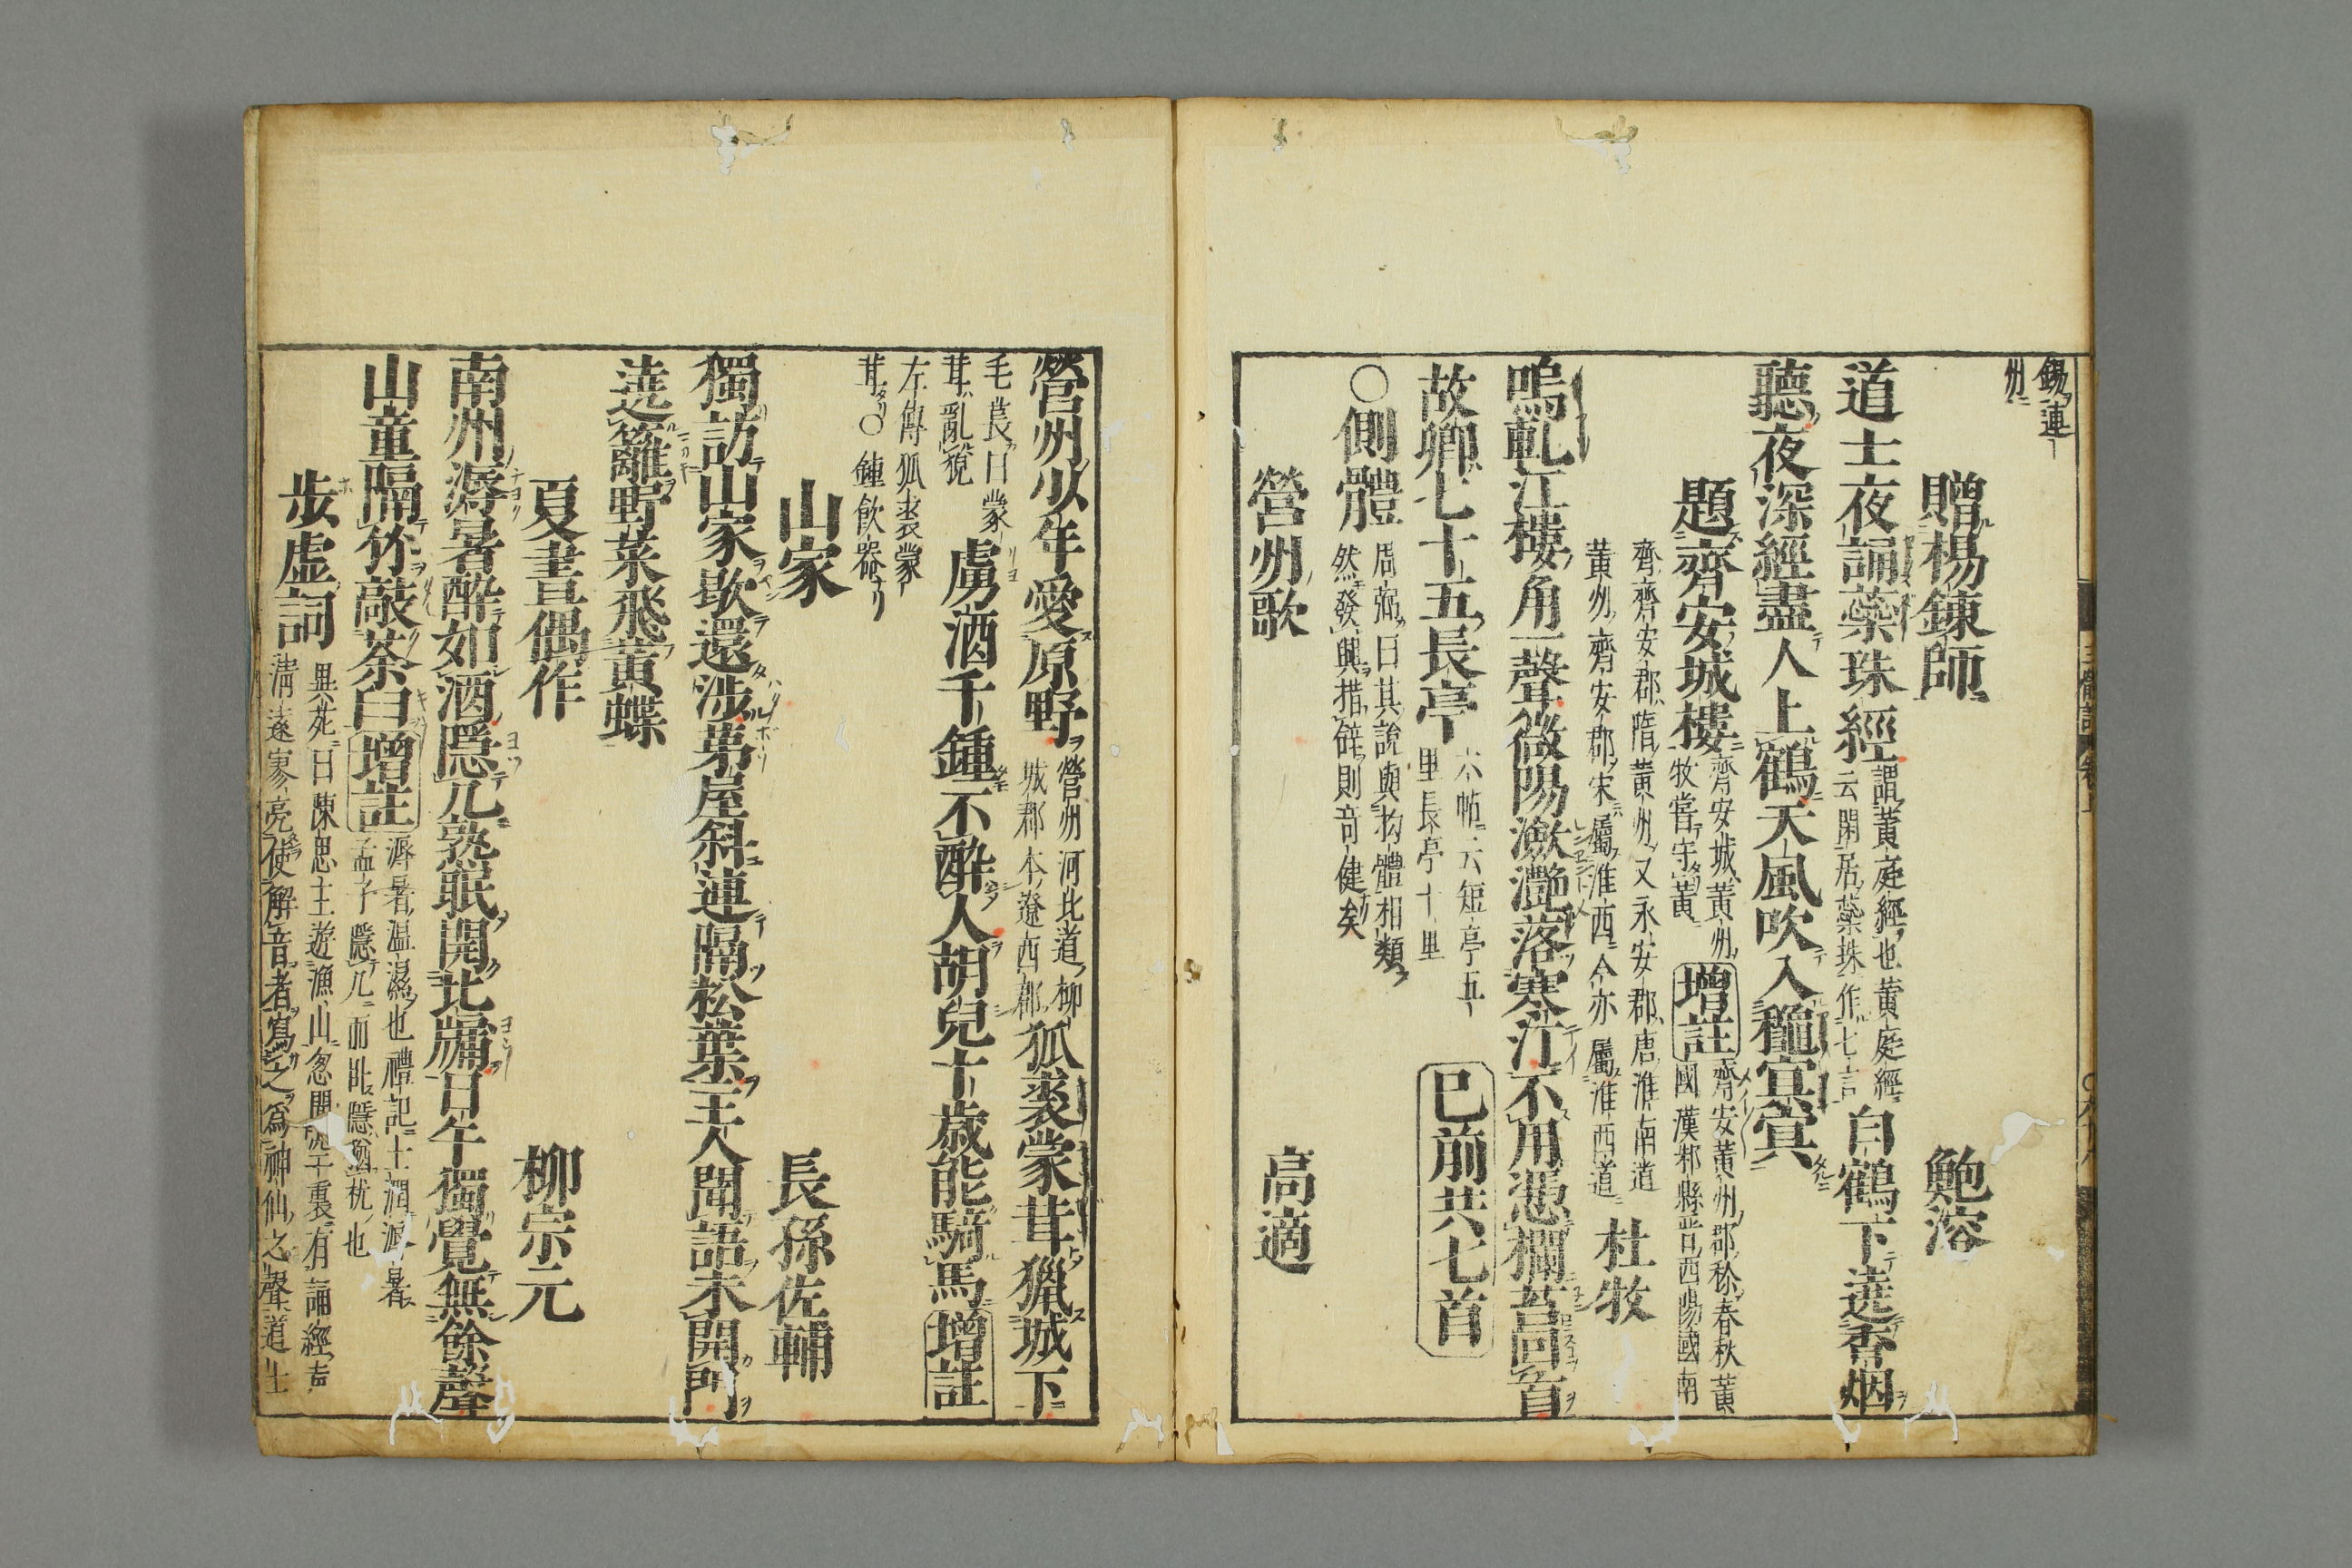 錫連
州
贈楊鍊師
鮑溶
道士夜誦蘂珠經
謂黃庭經也黃庭經
云閑居蘂珠作七言
白鶴下遶香烟
聽夜深經盡人上鶴天風吹入穐冥冥
題齊安城樓
齊安城黃州
牧嘗守黃
增註
齊安黃州郡
春秋黃
國漢邾縣晉西陽國南
齊齊安郡隋黃州又永安郡唐淮南道
黃州齊安郡宋屬淮西今亦屬淮西道
杜牧
嗚軋江樓角一聲微陽瀲灧落寒汀不用憑欄苦回首
故鄉七十五長亭
六帖云短亭五
里長亭十里
已前共七首
○側體
周弼曰其說與拗體相類
然發興措辭則奇健矣
營州歌
高適
營州少年愛原野
營州河北道柳
城郡本遼西郡
狐裘蒙茸獵城下
毛萇曰蒙
茸亂貌
虜酒千鍾不醉人胡兒十歲能騎馬
增註
左傳狐裘蒙
茸○鍾飲器
山家
長孫佐輔
獨訪山家歇還涉茅屋斜連隔松葉主人聞語未開門
遶籬野菜飛黃蝶
夏晝偶作
柳宗元
南州溽暑醉如酒隱几熟眠開北牖日午獨覺無餘聲
山童隔竹敲茶臼
增註
溽暑溫濕也禮記土潤溽暑
孟子隱几而臥隱猶杌也
步虛詞
異苑曰陳思王遊漁山忽聞
裏有誦經声
清遠寥亮使解音者寫之爲神仙之聲道士